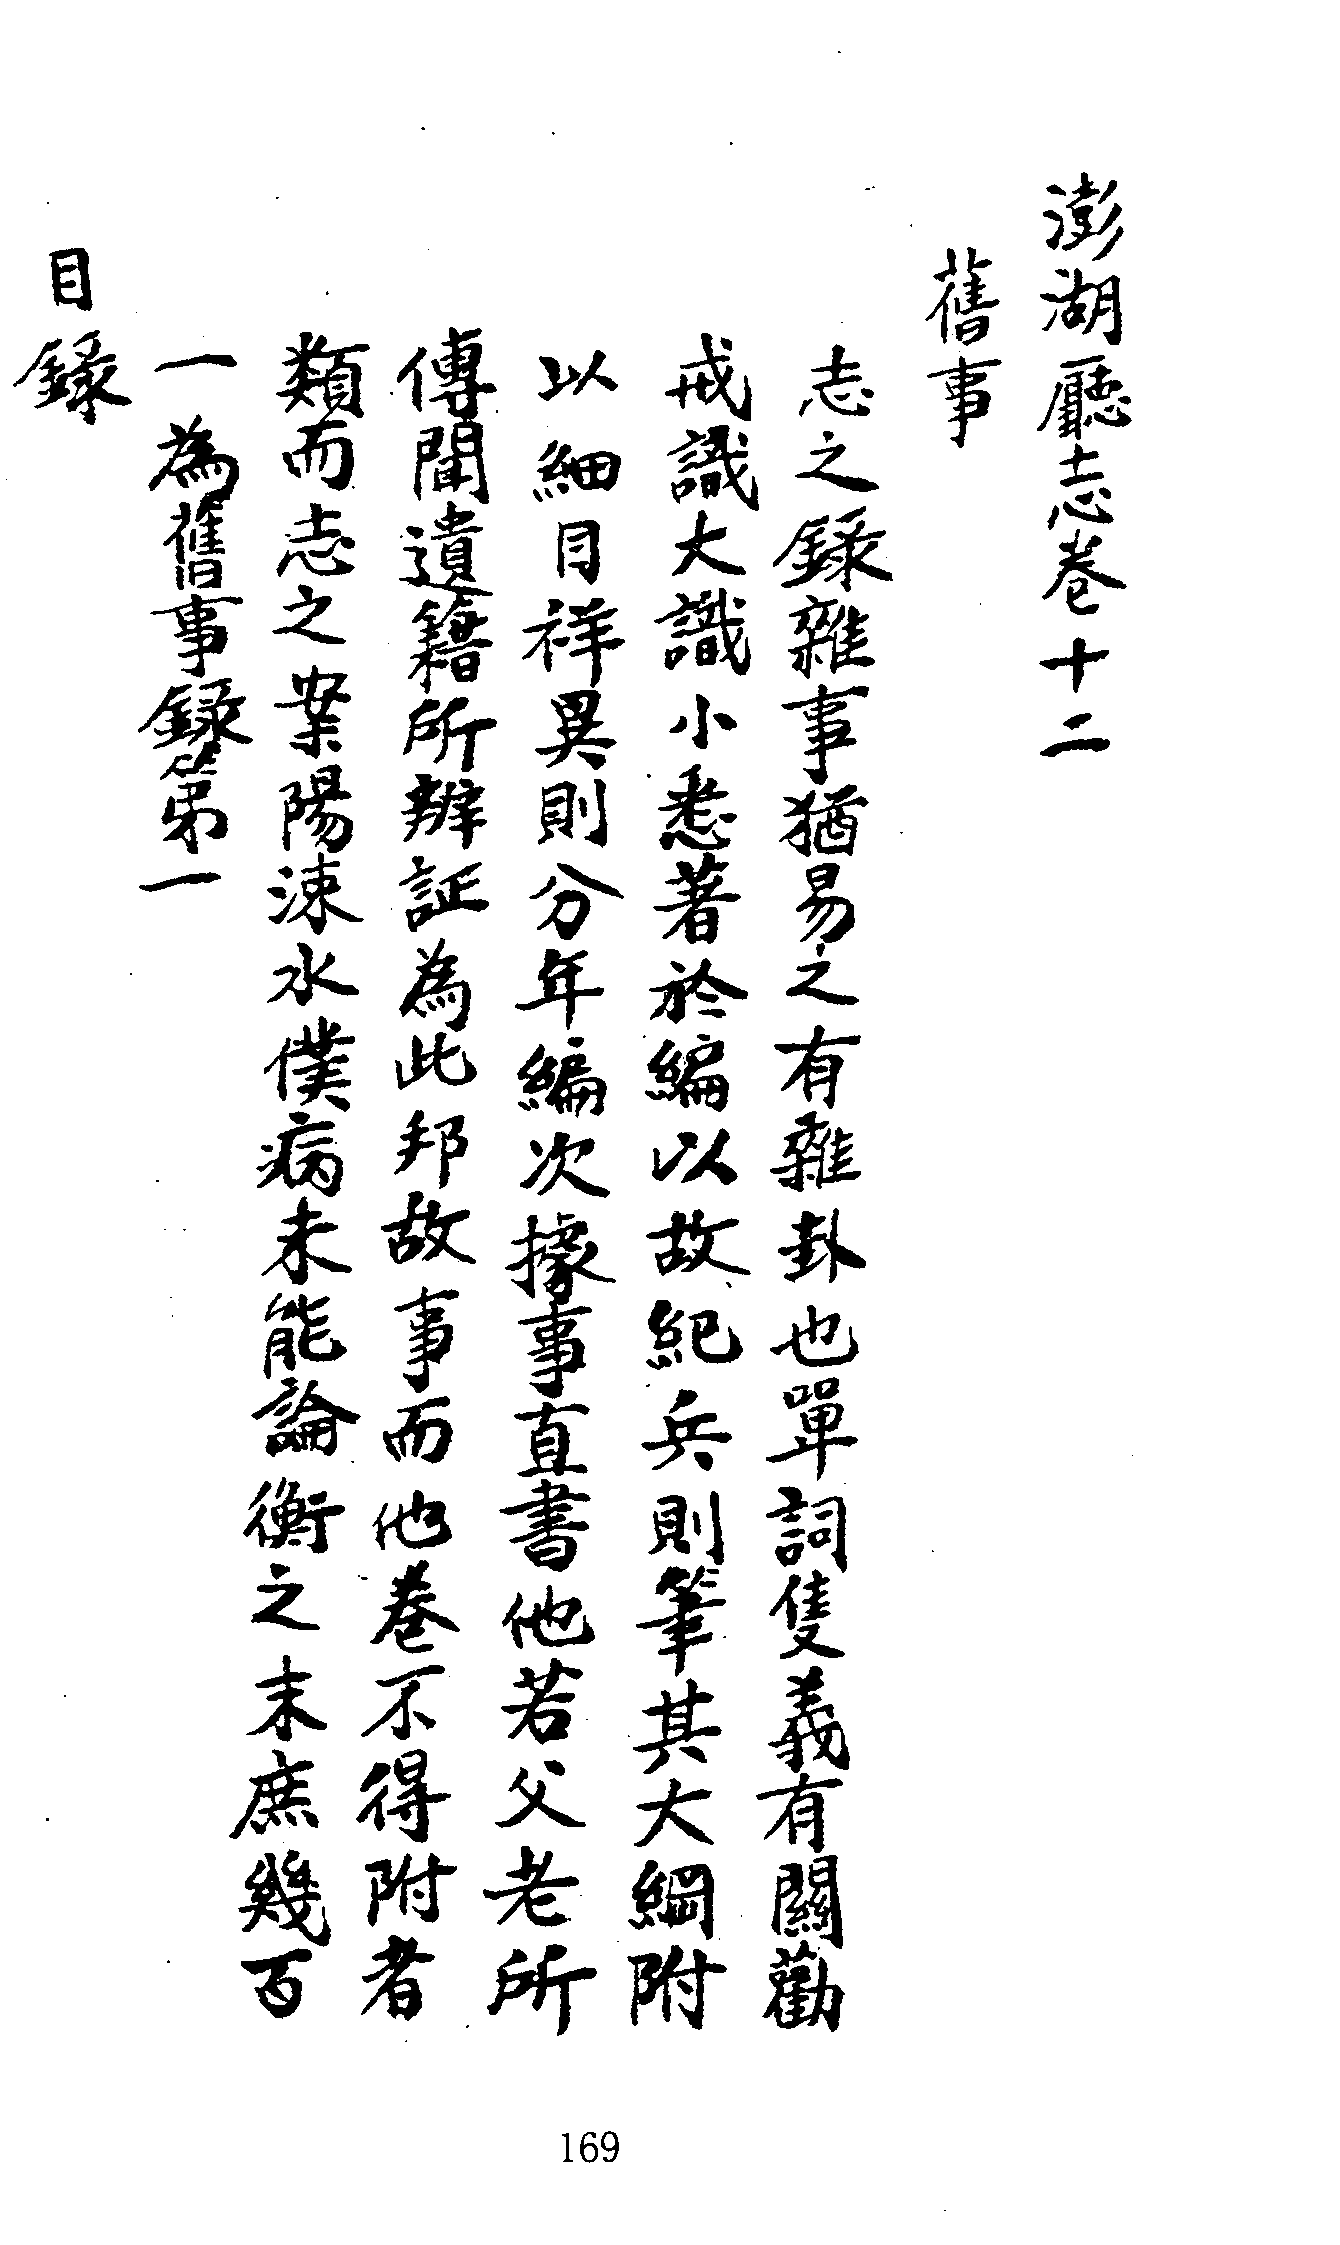 澎湖廳志卷十二
舊事
志之錄雜事猶易之有雜卦也單詞隻義有關勸
戒識大識小悉著於編以故紀兵則筆其大綱附
以細目祥異則分年編次據事直書他若父老所
傳聞遺籍所辨証為此邦故事而他卷不得附者
類而志之案陽涑水僕病未能論衡之末庶幾百
一為舊事錄第一
目錄
169